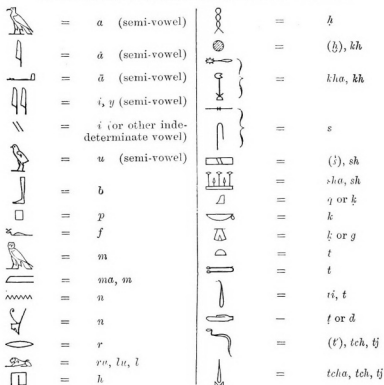 = a (semi-vowel)
= ȧ (semi-vowel)
= ā (semi-vowel)
= i, y (semi-vowel)
= i (or other inde-
determinate vowel)
= u (semi-vowel)
= b
= p
= f
= m
= ma, m
= n
= n
= r
= ru, lu, l
= h
= ḥ
= (ḫ), kh
= kha, kh
= s
= (š), sh
= sha, sh
= q or ḳ
= k
= ḳ or g
= t
= t
= ti, t
= ṭ or d
= (t'), tch, tj
= tcha, tch, tj